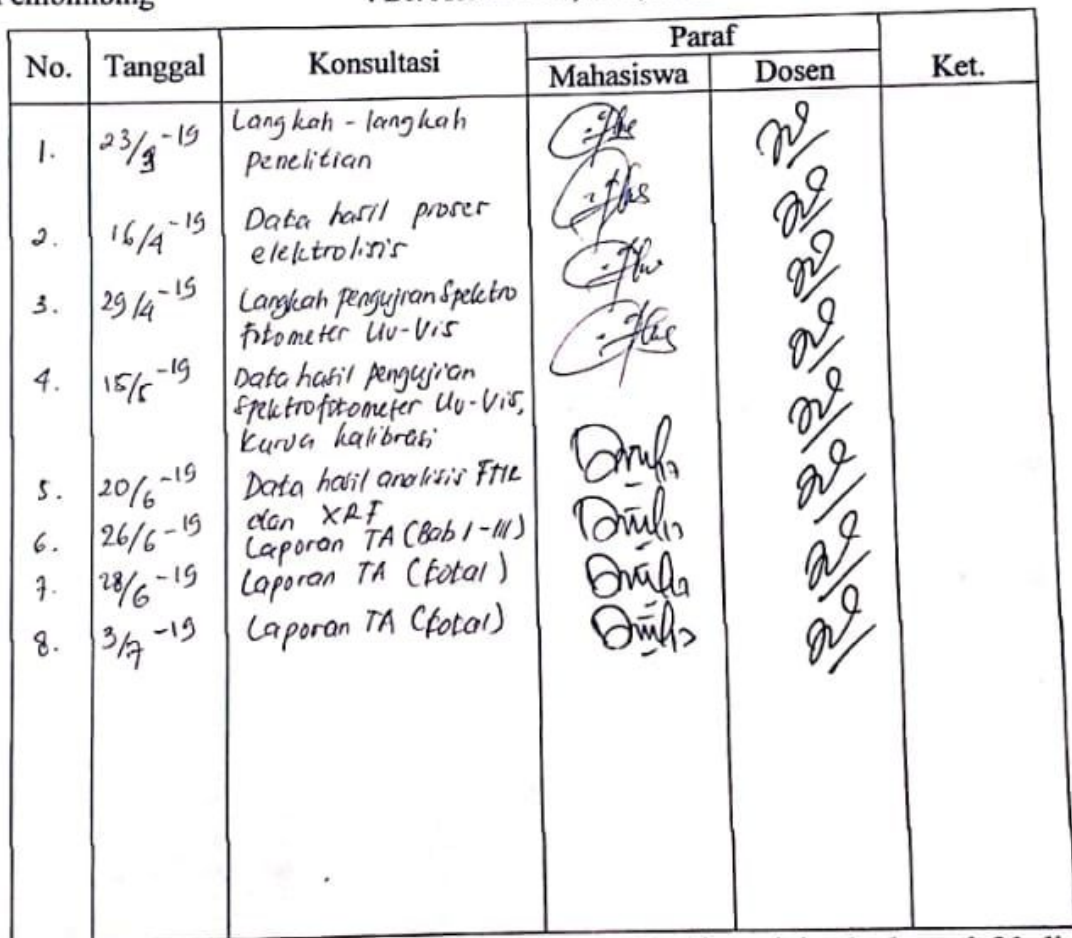 Pembimbing
Paraf
No. Tanggal Konsultasi Mahasiswa Dosen Ket.
1. 23/3-19 Langkah - langkah
penelitian
2. 16/4-19 Data hasil proses
elektrolisis
3. 29/4-19 Langkah pengujian Spektro
fotometer UV-Vis
4. 15/5-19 Data hasil pengujian
Spektrofotometer UV-Vis,
Kurva kalibrasi
5. 20/6-19 Data hasil analisis FTIR
dan XRF
6. 26/6-19 Laporan TA (Bab I-III)
7. 28/6-19 Laporan TA (total)
8. 3/7-19 Laporan TA (total)